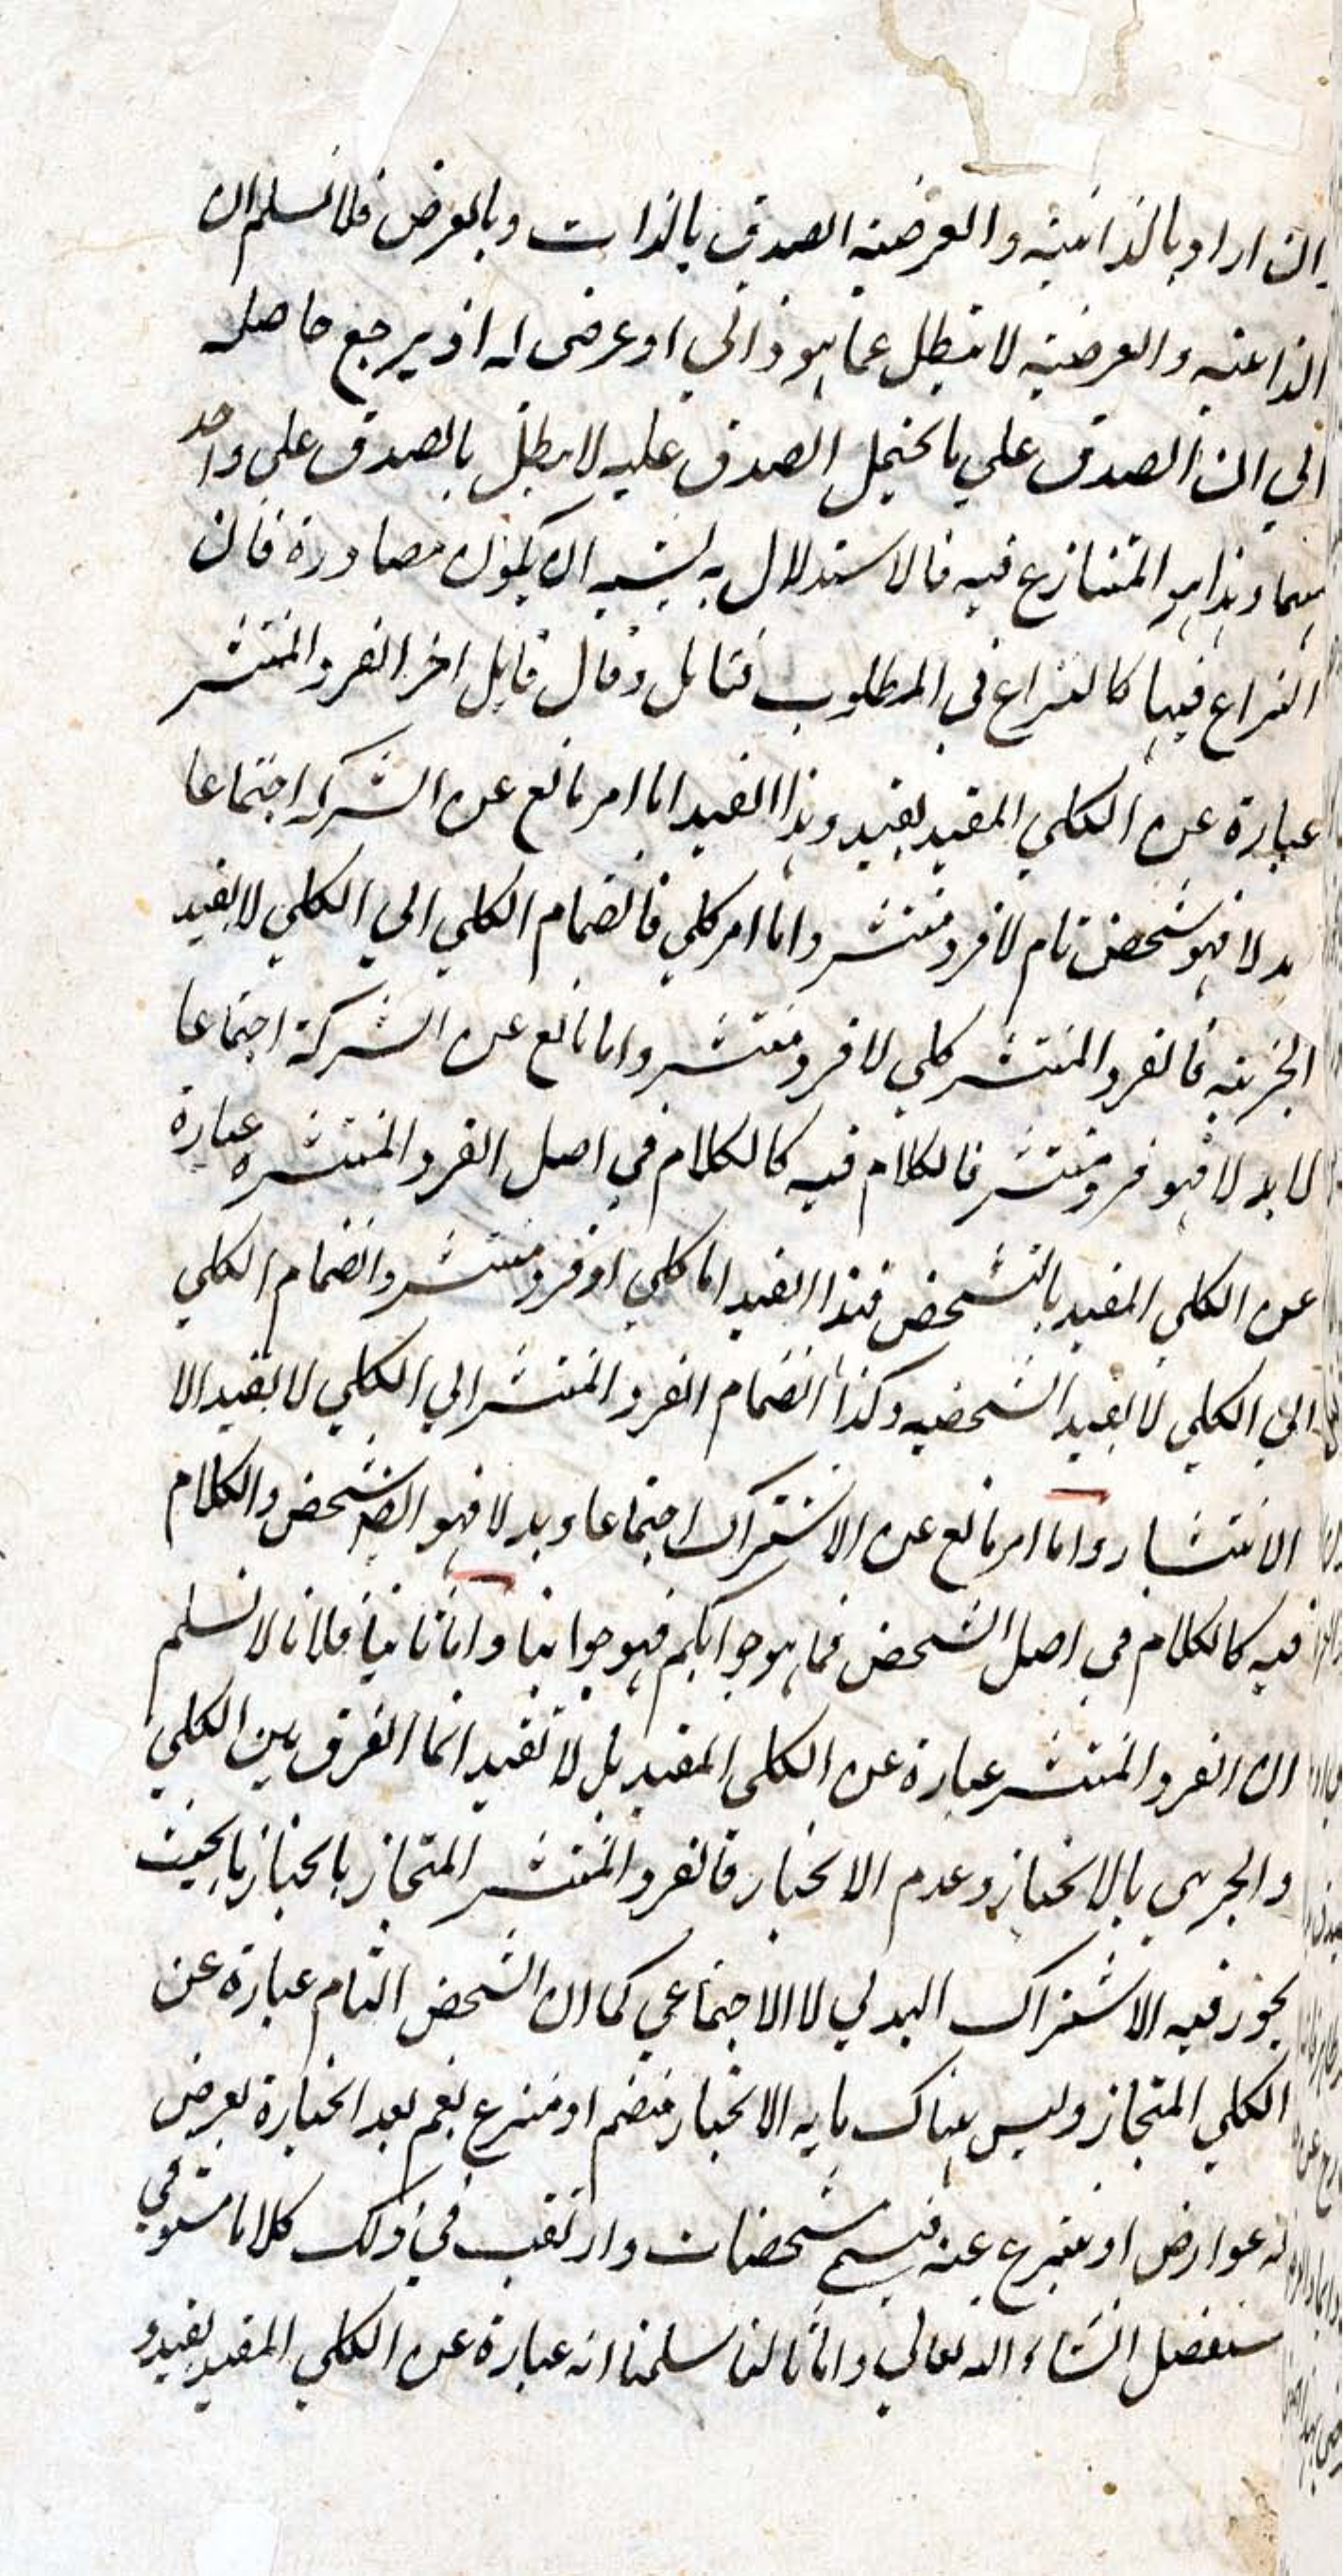 ان اراد بالذاتية والعرضية الصدق بالذات وبالعرض فلا نسلم ان
الذاتية والعرضية لا تبطل عما هو ذاتي او عرضي له اذ يرجع حاصله
الي ان الصدق علي ما يحتمل الصدق عليه لا يبطل بالصدق علي واحد
منهما وهذا هو المتنازع فيه فالاستدلال به يشبه ان يكون مصادرة فان
النزاع فيها كالنزاع في المطلوب فتامل وقال قايل اخر الفرد المنتشر
عبارة عن الكلي المقيد بقيد وهذا القيد اما امر مانع عن الشركة اجتماعا
بدلا فهو شخص تام لا فرد منتشر واما امر كلي فانضمام الكلي الي الكلي لا يفيد
الجزئية فالفرد المنتشر كلي لا فرد منتشر واما مانع عن الشركة اجتماعا
لا بدلا فهو فرد منتشر فالكلام فيه كالكلام في اصل الفرد المنتشر عبارة
عن الكلي المقيد بالتشخص فهذا القيد اما كلي او فرد منتشر وانضمام الكلي
الي الكلي لا يفيد الشخصيه وكذا انضمام الفرد المنتشر الي الكلي لا يفيد الا
الانتشار واما امر مانع عن الاشتراك اجتماعا وبدلا فهو ايضا شخص والكلام
فيه كالكلام في اصل الشخص فما هو جوابكم فهو جوابنا واما ثانيا فلانا لا نسلم
ان الفرد المنتشر عبارة عن الكلي المقيد بل لا تقيد انما الفرق بين الكلي
والجزئي بالانحياز وعدم الانحياز فالفرد المنتشر المنحاز بانحياز ما بحيث
يجوز فيه الاشتراك البدلي لا الاجتماعي كما ان الشخص التام عبارة عن
الكلي المنحاز وليس هناك ما به الانحياز منضم او منتزع نعم بعد انحيازه يعرض
له عوارض او ينتزع عنه فيسمي مشخصات وارتقب في ذلك كلاما مستوفي
سنفصل انشاء الله تعالي واما ثالثا سلمنا انه عبارة عن الكلي المقيد بقيد و